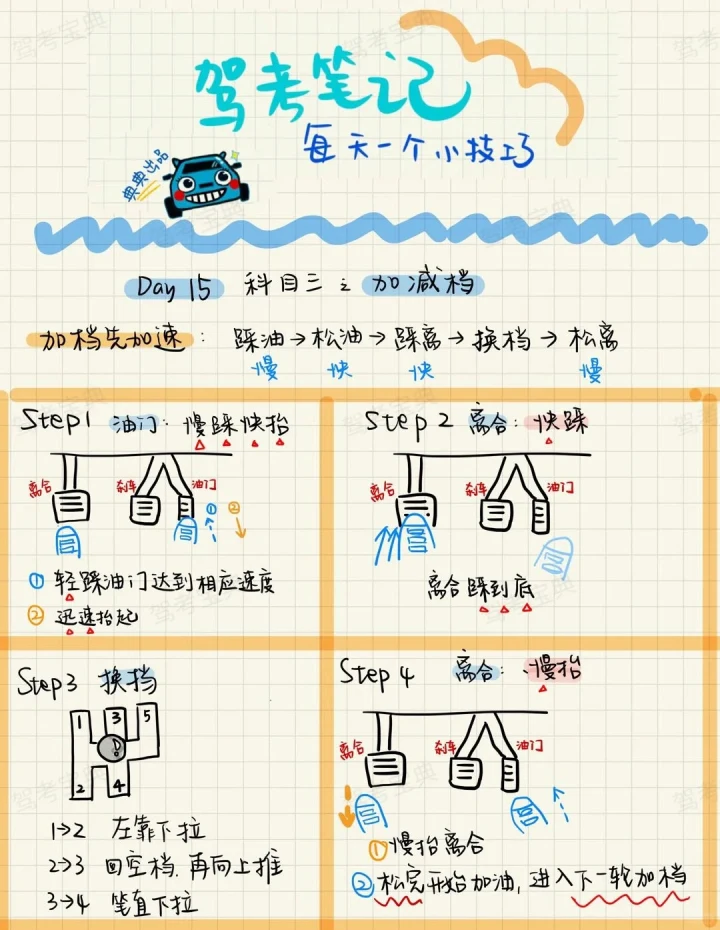 驾考笔记
每天一个小技巧
典典出品
Day 15 科目三之加减档
加档先加速：踩油→松油→踩离→换档→松离
慢 快 快 慢
Step1 油门：慢踩快抬
离合 刹车 油门 ① ②
① 轻踩油门达到相应速度
② 迅速抬起
Step 2 离合：快踩
离合 刹车 油门
离合踩到底
Step3 换挡
1 3 5
2 4
1→2 左靠下拉
2→3 回空档.再向上推
3→4 笔直下拉
Step 4 离合：慢抬
离合 刹车 油门
①慢抬离合
②松完开始加油,进入下一轮加档
驾考宝典